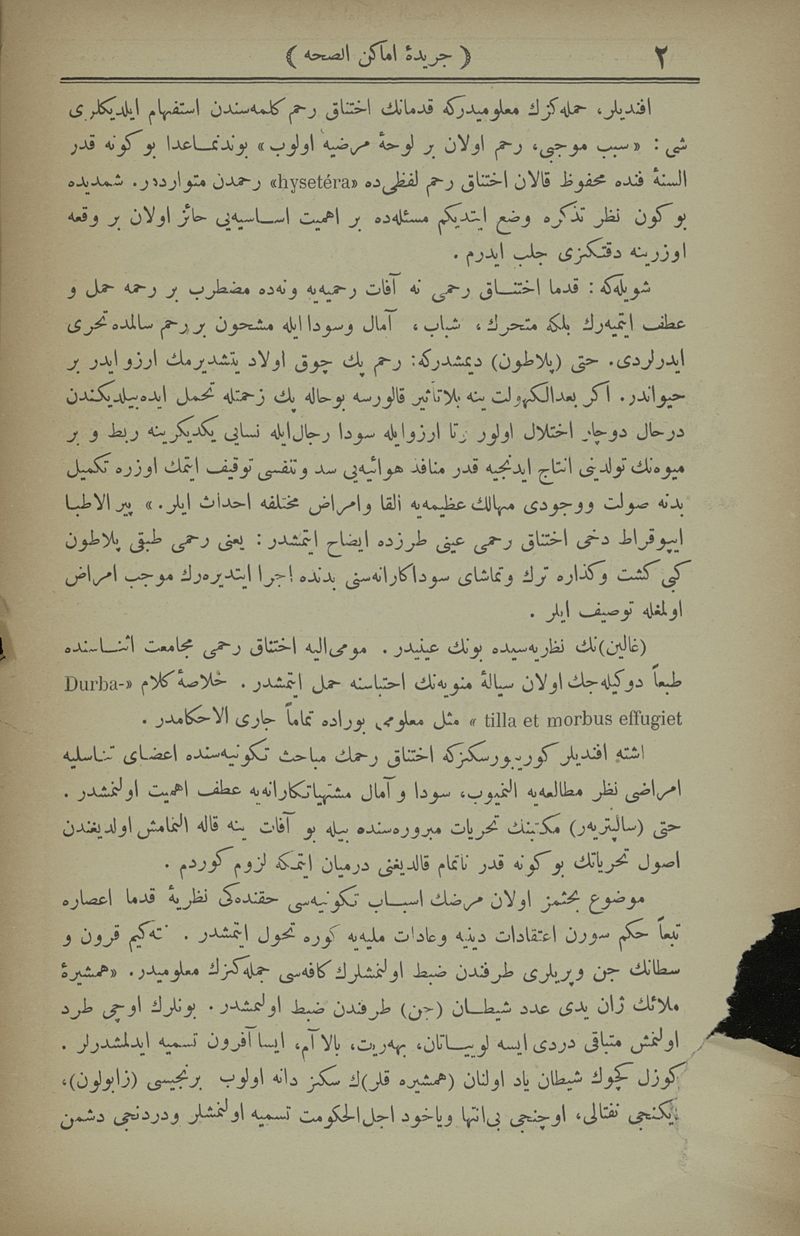 ٢ ﴿ جريدۀ اماكن الصحه ﴾
افنديلر، جمله‌كزك معلوميدركه قدمانك اختناق رحم كلمه‌سندن استفهام ايلديكلرى
شى : «سبب موجبى، رحم اولان بر لوحۀ مرضيه اولوب» بوندنماعدا بو كونه قدر
السنۀ فنده محفوظ قالان اختناق رحم لفظى‌ده «hysetéra» رحمدن متوارددر. شمديده
بو كون نظر تذكره وضع ايتديكم مسئله‌ده بر اهميت اساسيه‌يى حائز اولان بر وقعه
اوزرينه دقتكزى جلب ايدرم .
شويله‌كه : قدما اختناق رحمى نه آفات رحميه‌يه ونه‌ده مضطرب بر رحمه حمل و
عطف ايتميه‌رك بلكه متحرك، شباب، آمال وسودا ايله مشحون بر رحم سالمده تحرى
ايدرلردى. حتى (پلاطون) ديمشدركه: رحم پك چوق اولاد يتشديرمك آرزو ايدر بر
حيواندر. اكر بعدالكهولت ينه بلاتأثير قالورسه بوحاله پك زحمتله تحمل ايده‌بيلديكندن
درحال دوچار اختلال اولور تا آرزو ايله سودا رجال‌ايله نسايى يكديكرينه ربط و بر
ميوه‌نك تولدينى انتاج ايدنجيه قدر منافذ هوائيه‌يى سد وتنفسى توقيف ايتمك اوزره تكميل
بدنه صولت ووجودى مهالك عظيمه‌يه القا وامراض مختلفه احداث ايلر.» پير الاطبا
ايپوقراط دخى اختناق رحمى عينى طرزده ايضاح ايتمشدر : يعنى رحمى طبقى پلاطون
كبى كشت وكذاره ترك وتماشاى سوداكارانه‌سنى بدنده اجرا ايتديره‌رك موجب امراض
اولمغله توصيف ايلر .
(غالين)نك نظريه‌سيده بونك عينيدر . مومى‌اليه اختناق رحمى مجامعت اثناسنده
طبعاً دوكيله‌جك اولان سيالۀ منويه‌نك احتباسنه حمل ايتمشدر . خلاصۀ كلام «Durba-
tilla et morbus effugiet» مثل معلومى بوراده تماماً جارى الاحكامدر .
اشته افنديلر كوريبورسكزكه اختناق رحمك مباحث تكونيه‌سنده اعضاى تناسليه
امراضى نظر مطالعه‌يه النميوب، سودا و آمال مشتهياتكارانه‌يه عطف اهميت اولنمشدر .
حتى (سالپتريه‌ر) مكتبنك تحريات مبروره‌سنده بيله بو آفات ينه قاله النمامش اولديغندن
اصول تحرياتك بو كونه قدر ناتمام قالديغنى درميان ايتمكه لزوم كوردم .
موضوع بحثمز اولان مرضك اسباب تكونيه‌سى حقنده‌كى نظريۀ قدما اعصاره
تبعاً حكم سورن اعتقادات دينيه وعادات مليه‌يه كوره تحول ايتمشدر . نته‌كيم قرون و
سطانك جن وپريلرى طرفندن ضبط اولنمشلرك كافه‌سى جمله‌كزك معلوميدر. «همشيرۀ
ملائك ژان يدى عدد شيطان (جن) طرفندن ضبط اولنمشدر. بونلرك اوچى طرد
اولنمش متباقى دردى ايسه لوبياتان، بهه‌ريت، بالاآم، ايساآقرون تسميه ايدلمشدرلر .
كوزل كچوك شيطان ياد اولنان (همشيره قلر)ك سكز دانه اولوب برنجيسى (زابولون)،
يكنجى نفتالى، اوچنجى بى‌انتها وياخود اجل‌الحكومت تسميه اولنمشلر ودردنجى دشمن